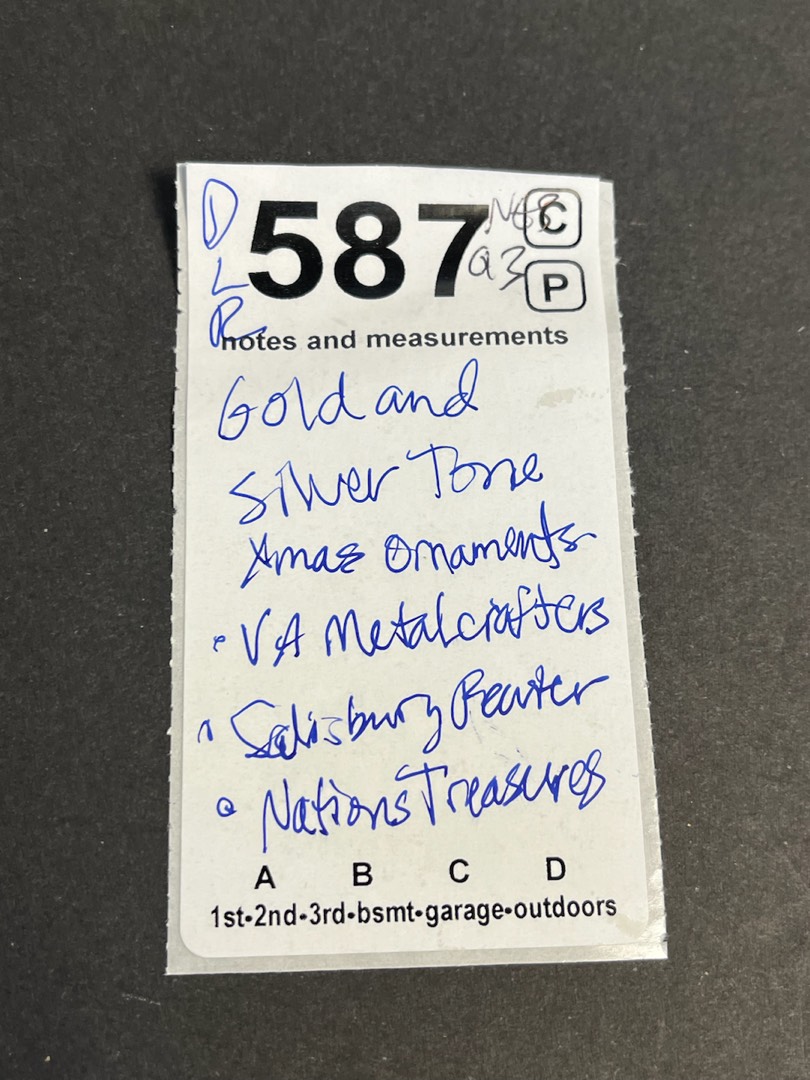 DLR
587
C
P
notes and measurements
Gold and
Silver Tone
Xmas Ornaments
• VA Metalcrafters
• Salisbury Pewter
• Nations Treasures
A B C D
1st•2nd•3rd•bsmt•garage•outdoors